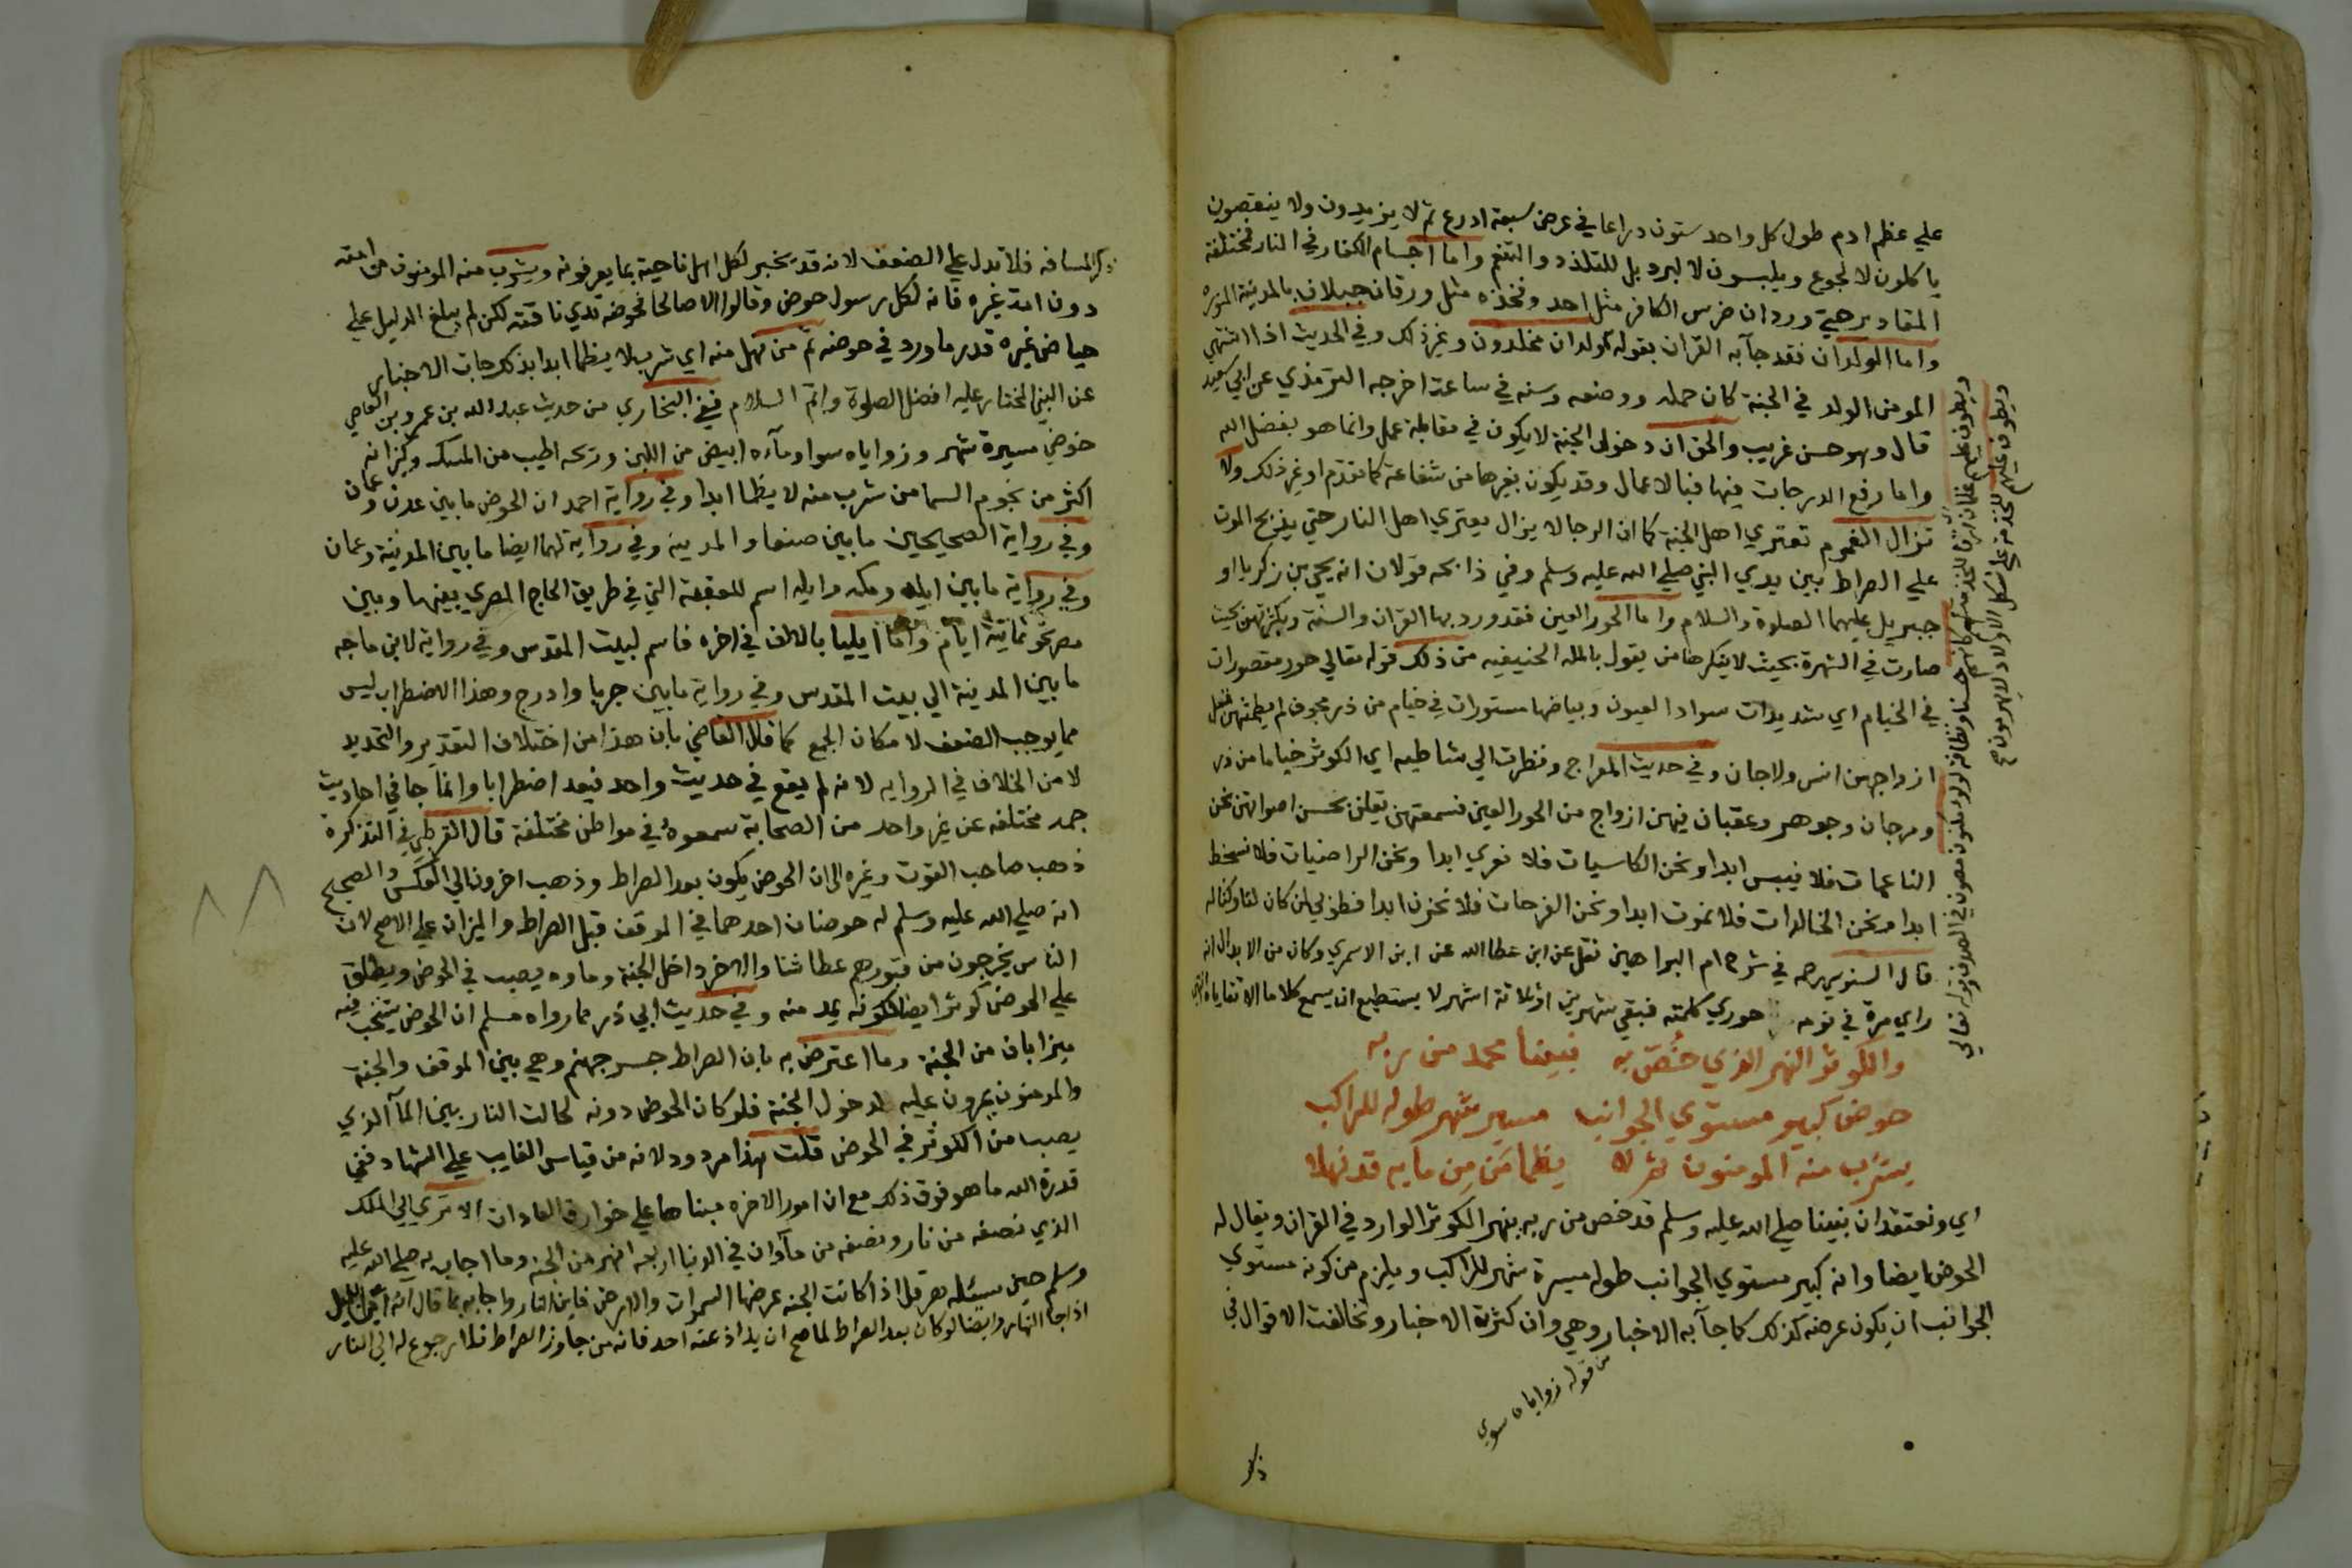 علي عظم ادم طول كل واحد ستون دراعا في عرض سبعة ادرع ثم لا يزيدون ولا ينقصون
ياكلون لا لجوع ويلبسون لا لبرد بل للتلذذ والتنعم واما اجسام الكفار في النار فمختلفة
المقادير حتي ورد ان ضرس الكافر مثل احد وفخذه مثل ورقان جبلان بالمدينة المنوره
واما الولدان فقد جآبه القران بقوله ولدان مخلدون وغير ذلك وفي الحديث اذا اشتهي
المومن الولد في الجنة كان حمله ووضعه وسنه في ساعة اخرجه الترمذي عن ابي سعيد
قال وهو حسن غريب والحق ان دخول الجنة لا يكون في مقابلة عمل وانما هو بفضل الله
واما رفع الدرجات فيها فبالاعمال وقد يكون بغيرها من شفاعة كما تقدم او غير ذلك ولا
تزال الغموم تعتري اهل الجنة كما ان الرجا لا يزال يعتري اهل النار حتي يذبح الموت
علي الصراط بين يدي النبي صلي الله عليه وسلم وفي ذابحه قولان انه يحيي بن زكريا او
جبريل عليهما الصلوة والسلام واما الحور العين فقد ورد بها القران والسنة وبكثرتهن بحيث
صارت في الشهرة بحيث لا ينكرها من يقول بالملة الحنيفيه من ذلك قوله تعالي حور مقصورات
في الخيام اي شديدات سواد العيون وبياضها مستورات في خيام من در مجوف لم يطمثهن قبل
ازواجهن انس ولا جان وفي حديث المعراج ونظرت الي شاطيه اي الكوثر خياما من در
ومرجان وجوهر وعقيان فيهن ازواج من الحور العين فسمعتهن يقلن بحسن اصواتهن نحن
الناعمات فلا نيبس ابدا ونحن الكاسيات فلا نعري ابدا ونحن الراضيات فلا نسخط
ابدا ونحن الخالدات فلا نموت ابدا ونحن الفرحات فلا نحزن ابدا فطوبي لمن كان لنا وكنا له
قال السنوسي رحمه في شرح ام البراهين نقل عن ابن عطا الله عن ابن الاسمري وكان من الابدال انه
راي مرة في نومه حوري كلمته فبقي شهرين او ثلاثة اشهر لا يستطيع ان يسمع كلاما الا تقاياه
والكوثر النهر الذي خُصّ به نبينا محمد من ربه
حوض كبير مستوي الجوانب مسير شهر طوله للراكب
يشرب منه المومنون ثم لا يظما مَن مِن مايه قد نهلا
اي ونعتقد ان نبينا صلي الله عليه وسلم قد خص من ربه بنهر الكوثر الوارد في القران ويقال له
الحوض ايضا وانه كبير مستوي الجوانب طوله مسيرة شهر للراكب ويلزم من كونه مستوي
الجوانب ان يكون عرضه كذلك كما جآ به الاخبار وهي وان كثرة الاخبار وتخالفت الاقوال في
من قوله زواياه سوي
ذكر
ويطوف عليهم غلمان حسنا ونظافة لولو مكنون مصون في الصدف قوله تعالي
ويطوف عليهم للخدمة علي شكل الاولاد لا يهرمون
ذكر المسافه فلا تدل علي الضعف لانه قد يخبر لكل اهل ناحية بما يعرفونه ويشرب منه المومنون من امته
دون امة غيره فانه لكل رسول حوض وقالوا الا صالحا فحوضه ثدي ناقته لكن لم يبلغ الدليل علي
حياض غيره قدر ما ورد في حوضه ثم من نهل منه اي شرب لا يظما ابدا بذلك جات الاخبار
عن النبي المختار عليه افضل الصلوة واتم السلام ففي البخاري من حديث عبد الله بن عمرو بن العاصي
حوضي مسيرة شهر وزواياه سوا ومآءه ابيض من اللبن وريحه اطيب من المسك وكيزانه
اكثر من نجوم السما من شرب منه لا يظما ابدا وفي رواية احمد ان الحوض ما بين عدن وعمان
وفي رواية الصحيحين ما بين صنعا والمدينة وفي رواية لهما ايضا ما بين المدينة وعمان
وفي رواية ما بين ايله ومكه وايله اسم للعقبة التي في طريق الحاج المصري بينها وبين
مصر نحو ثمانية ايام واما ايليا بالالف في اخره فاسم لبيت المقدس وفي رواية لابن ماجه
ما بين المدينة الي بيت المقدس وفي رواية ما بين جربا وادرح وهذا الاضطراب ليس
مما يوجب الضعف لامكان الجمع كما قال القاضي بان هذا من اختلاف التقدير والتحديد
لا من الخلاف في الروايه لانه لم يقع في حديث واحد فيعد اضطرابا وانما جا في احاديث
جمه مختلفه عن غير واحد من الصحابة سمعوه في مواطن مختلفة قال القرطبي في التذكرة
ذهب صاحب القوت وغيره الي ان الحوض يكون بعد الصراط وذهب اخرون الي العكس والصحيح
انه صلي الله عليه وسلم له حوضان احدهما في الموقف قبل الصراط والميزان علي الاصح لان
الناس يخرجون من قبورهم عطاشا والاخر داخل الجنة وماوه يصب في الحوض ويطلق
علي الحوض كوثر ايضا لكونه يمد منه وفي حديث ابي ذر مما رواه مسلم ان الحوض يشخب فيه
ميزابان من الجنة وما اعترض به بان الصراط جسر جهنم وهي بين الموقف والجنة
والمومنون يمرون عليه لدخول الجنة فلو كان الحوض دونه لحالت النار بين المآ الذي
يصب من الكوثر في الحوض قلت هذا مردود لانه من قياس الغايب علي الشهاد ففي
قدرة الله ما هو فوق ذلك مع ان امور الاخره مبناها علي خوارق العادات الا تري الي الملك
الذي نصفه من نار ونصفه من مآ وان في الدنيا اربعه انهر من الجنه وما اجاب به صلي الله عليه
وسلم حين سئله هرقل اذا كانت الجنه عرضها السموات والارض فاين النار واجابه بما قال اين الليل
اذا جا النهار وايضا لو كان بعد الصراط لما صح ان يذاد عنه احد فانه من جاوز الصراط فلا رجوع له الي النار
٨٨